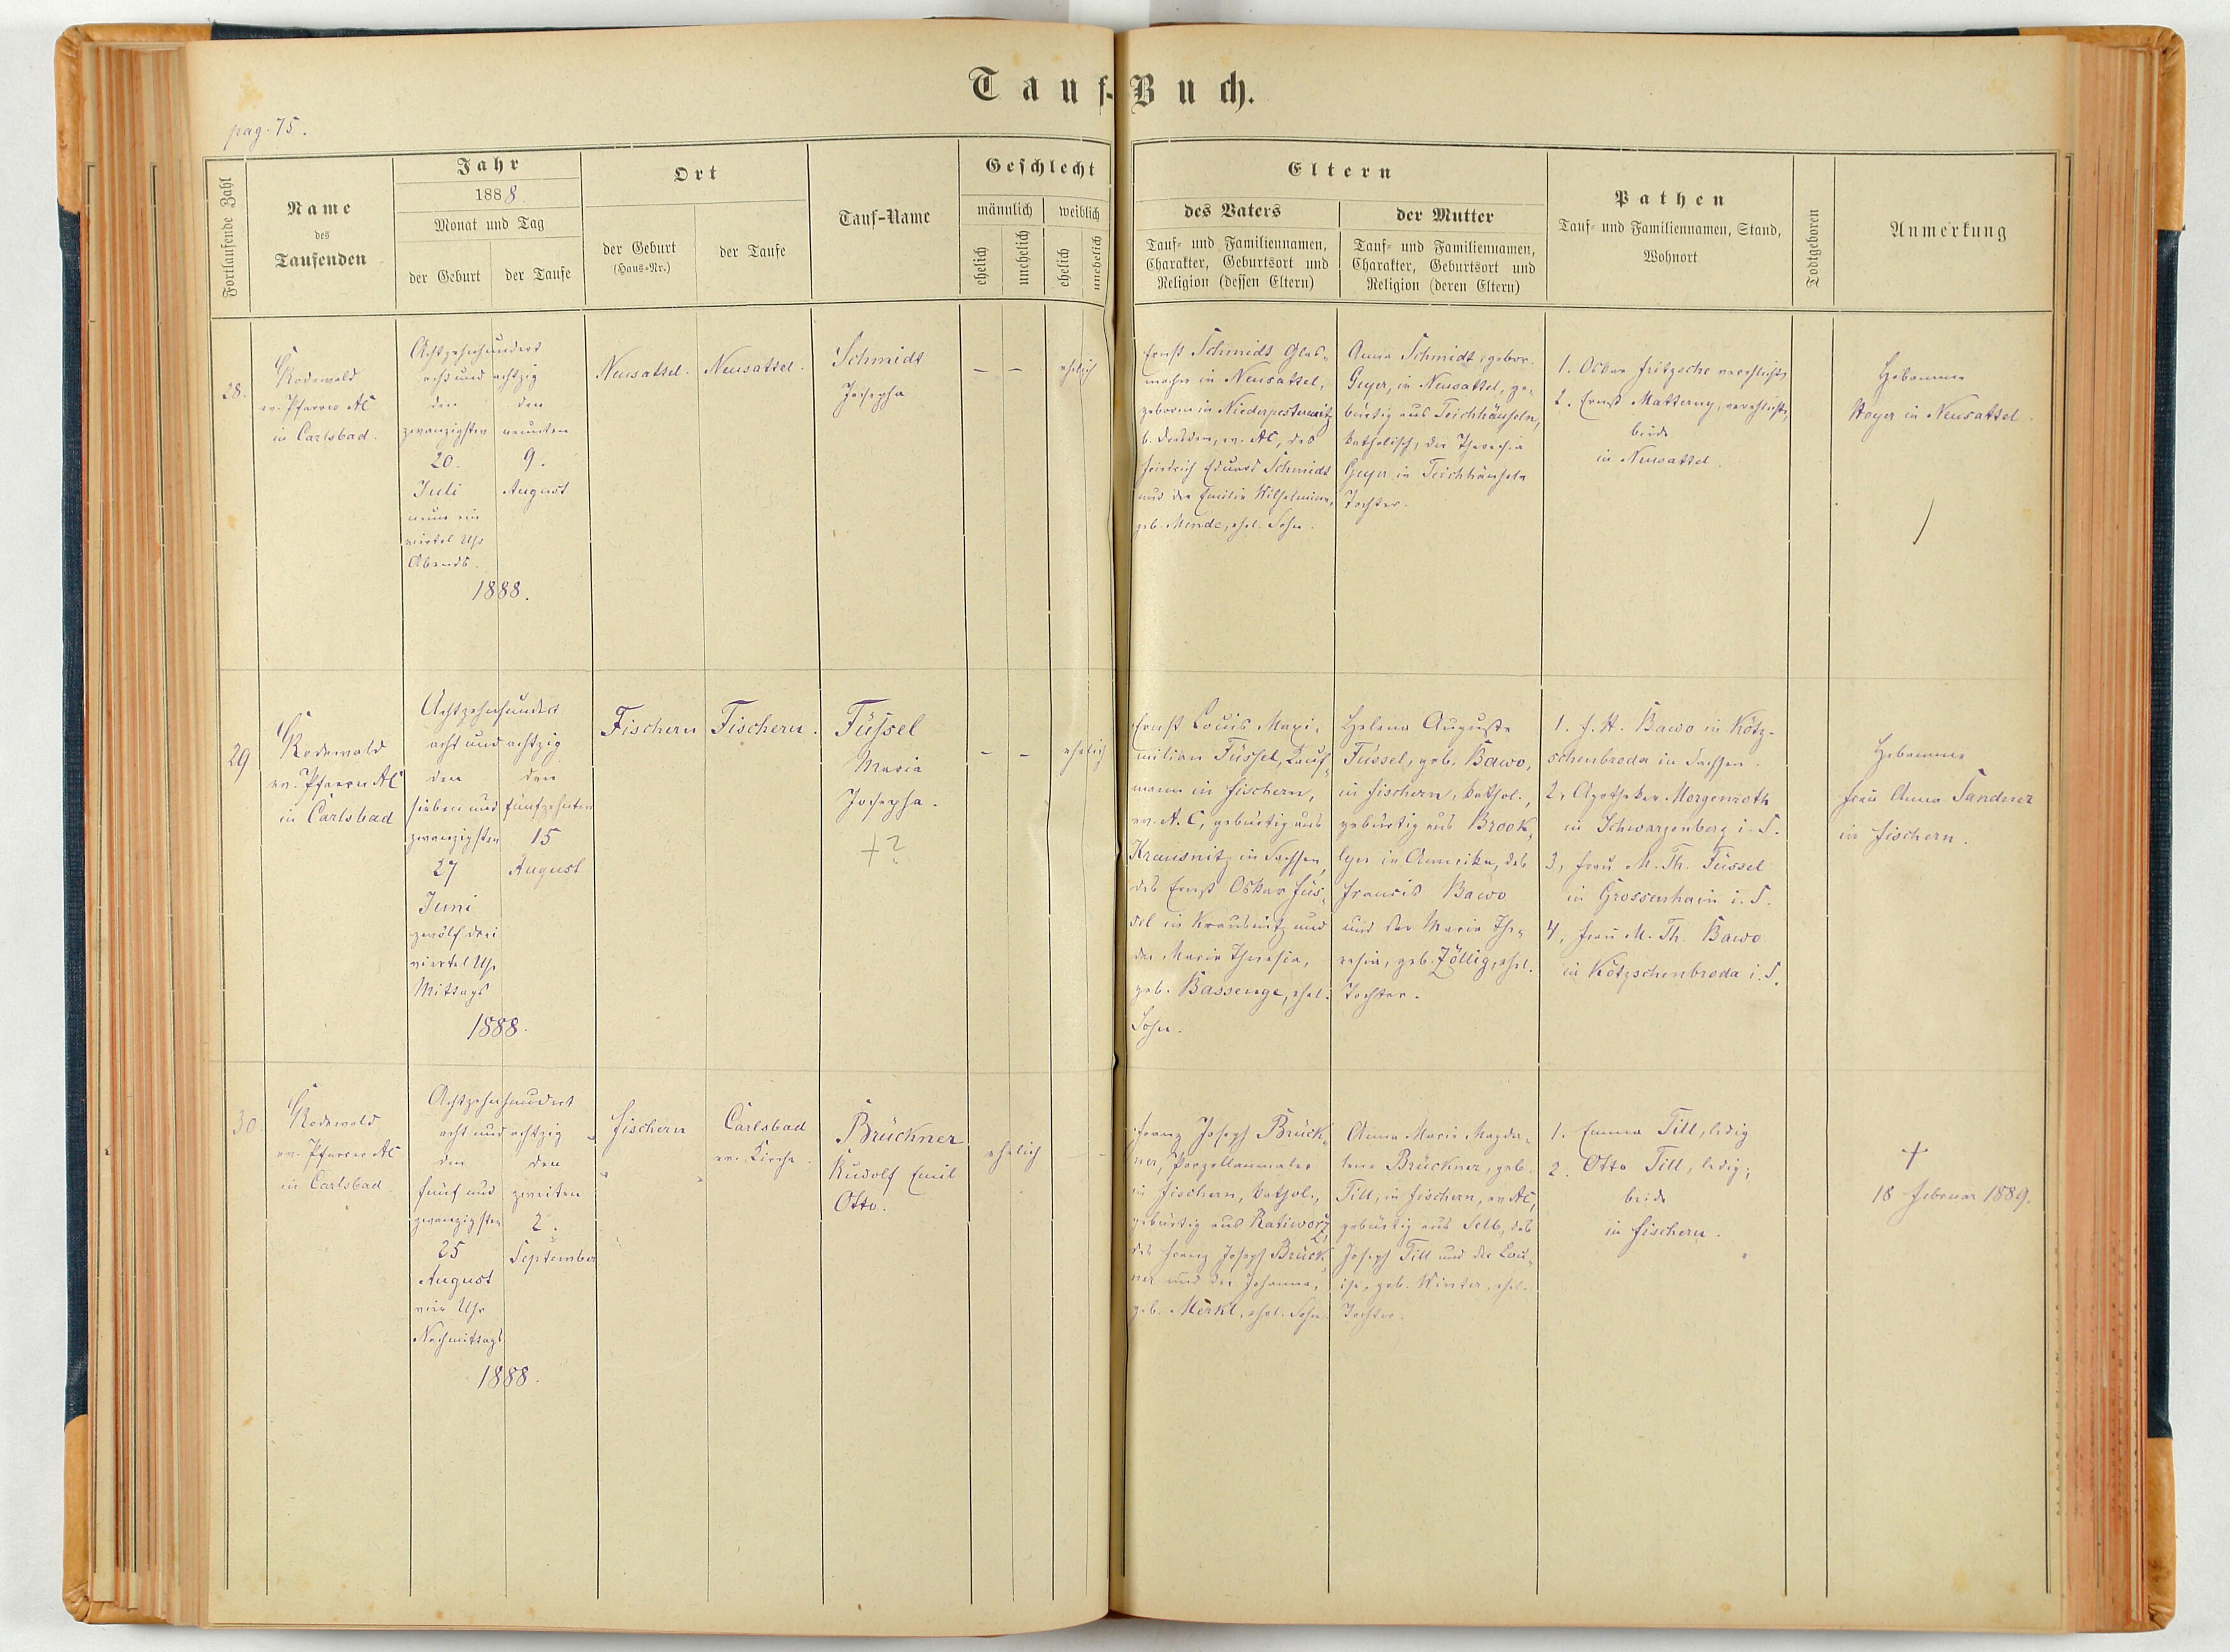 Tauf-Buch.
pag. 75.
Fortlaufende Zahl
Name
des
Taufenden
Jahr
1888.
Monat und Tag
der Geburt
der Taufe
Ort
der Geburt
(Haus-Nr.)
der Taufe
Tauf-Name
Geschlecht
männlich
weiblich
ehelich
unehelich
ehelich
unehelich
Eltern
des Vaters
Tauf- und Familiennamen,
Charakter, Geburtsort und
Religion (dessen Eltern)
der Mutter
Tauf- und Familiennamen,
Charakter, Geburtsort und
Religion (deren Eltern)
Pathen
Tauf- und Familiennamen, Stand,
Wohnort
Todtgeboren
Anmerkung
28.
Rodewald
ev. Pfarrer AC
in Carlsbad.
Achtzehnhundert
acht und achtzig
den
zwanzigsten
20.
Juli
neun ein
viertel Uhr
Abends.
den
neunten
9.
August
1888.
Neusattel.
Neusattel.
Schmidt
Josepha
–
–
ehelich
Ernst Schmidt Glas-
macher in Neusattel,
geboren in Niederpesterwitz
b. Dresden, ev. AC, des
Friedrich Eduard Schmidt
und der Emilie Wilhelmine,
geb. Mende, ehel. Sohn.
Anna Schmidt, gebor.
Geyer, in Neusattel, ge-
bürtig aus Teichhäuseln,
katholisch, der Theresia
Geyer in Teichhäuseln
Tochter.
1. Oskar Fritzsche verehlicht,
2. Ernst Matterny, verehlicht,
beide
in Neusattel.
Hebamme
Mayer in Neusattel.
29
Rodewald
ev. Pfarrer AC
in Carlsbad
Achtzehnhundert
acht und achtzig
den
sieben und
zwanzigsten
27
Juni
zwölf drei
viertel Uhr
Mittags
den
fünfzehnten
15
August
1888.
Fischern
Fischern.
Füssel
Maria
Josepha.
+?
–
–
ehelich
Ernst Louis Maxi-
milian Füssel, Kauf-
mann in Fischern,
ev. A. C, gebürtig aus
Krausnitz in Sachsen,
des Ernst Oskar Füs-
sel in Krausnitz und
der Maria Theresia,
geb. Bassenge, ehel.
Sohn.
Helena Auguste
Füssel, geb. Bawo,
in Fischern, kathol.,
gebürtig aus Brook-
lyn in Amerika, des
Francis Bawo
und der Maria The-
resia, geb. Zöllig, ehel.
Tochter.
1. F. H. Bawo in Kötz-
schenbroda in Sachsen.
2, Apotheker Morgenroth
in Schwarzenberg i. S.
3, Frau M. Th. Füssel
in Grossenhain i. S.
4, Frau M. Th. Bawo
in Kötzschenbroda i. S.
Hebamme
Frau Anna Sandner
in Fischern.
30
Rodewald
ev. Pfarrer AC
in Carlsbad
Achtzehnhundert
acht und achtzig
den
fünf und
zwanzigsten
25
August
vier Uhr
Nachmittags
den
zweiten
2.
September
1888.
Fischern
Carlsbad
ev. Kirche.
Brückner
Rudolf Emil
Otto.
ehelich
Franz Joseph Brück-
ner, Porzellanmaler
in Fischern, kathol.,
gebürtig aus Ratiworz,
des Franz Joseph Brück-
ner und der Johanna,
geb. Merkl, ehel. Sohn
Anna Maria Magda-
lena Brückner, geb.
Till, in Fischern, ev AC,
gebürtig aus Selb, des
Joseph Till und der Lou-
ise, geb. Winter, ehel.
Tochter.
1. Emma Till, ledig
2. Otto Till, ledig,
beide
in Fischern.
+
18 Februar 1889.